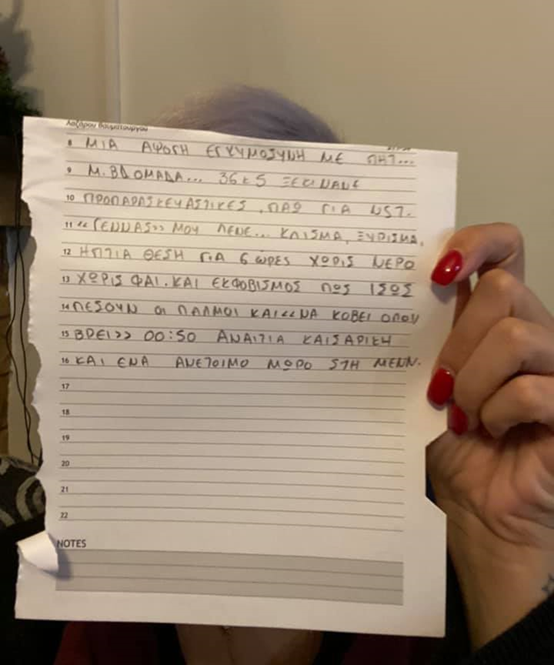 Λαζάρου θαυματουργού
8 ΜΙΑ ΑΨΟΓΗ ΕΓΚΥΜΟΣΥΝΗ ΜΕ
9 Μ. ΒΔΟΜΑΔΑ... 36 κ 5 ΞΕΚΙΝΑΝΕ
10 ΠΡΟΠΑΡΑΣΚΕΥΑΣΤΙΚΕΣ. ΠΑΩ ΓΙΑ NST.
11 «ΓΕΝΝΑΣ» ΜΟΥ ΛΕΝΕ... ΚΛΙΣΜΑ, ΞΥΡΙΣΜΑ,
12 ΗΠΤΙΑ ΘΕΣΗ ΓΙΑ 6 ΩΡΕΣ ΧΩΡΙΣ ΝΕΡΟ
13 ΧΩΡΙΣ ΦΑΙ. ΚΑΙ ΕΚΦΟΒΙΣΜΟΣ ΠΩΣ ΙΣΩΣ
14 ΠΕΣΟΥΝ ΟΙ ΠΑΛΜΟΙ ΚΑΙ «ΝΑ ΚΟΒΕΙ ΟΠΟΥ
15 ΒΡΕΙ» 00:50 ΑΝΑΙΤΙΑ ΚΑΙΣΑΡΙΚΗ
16 ΚΑΙ ΕΝΑ ΑΝΕΤΟΙΜΟ ΜΩΡΟ ΣΤΗ ΜΕΝΝ.
17
18
19
20
21
22
NOTES